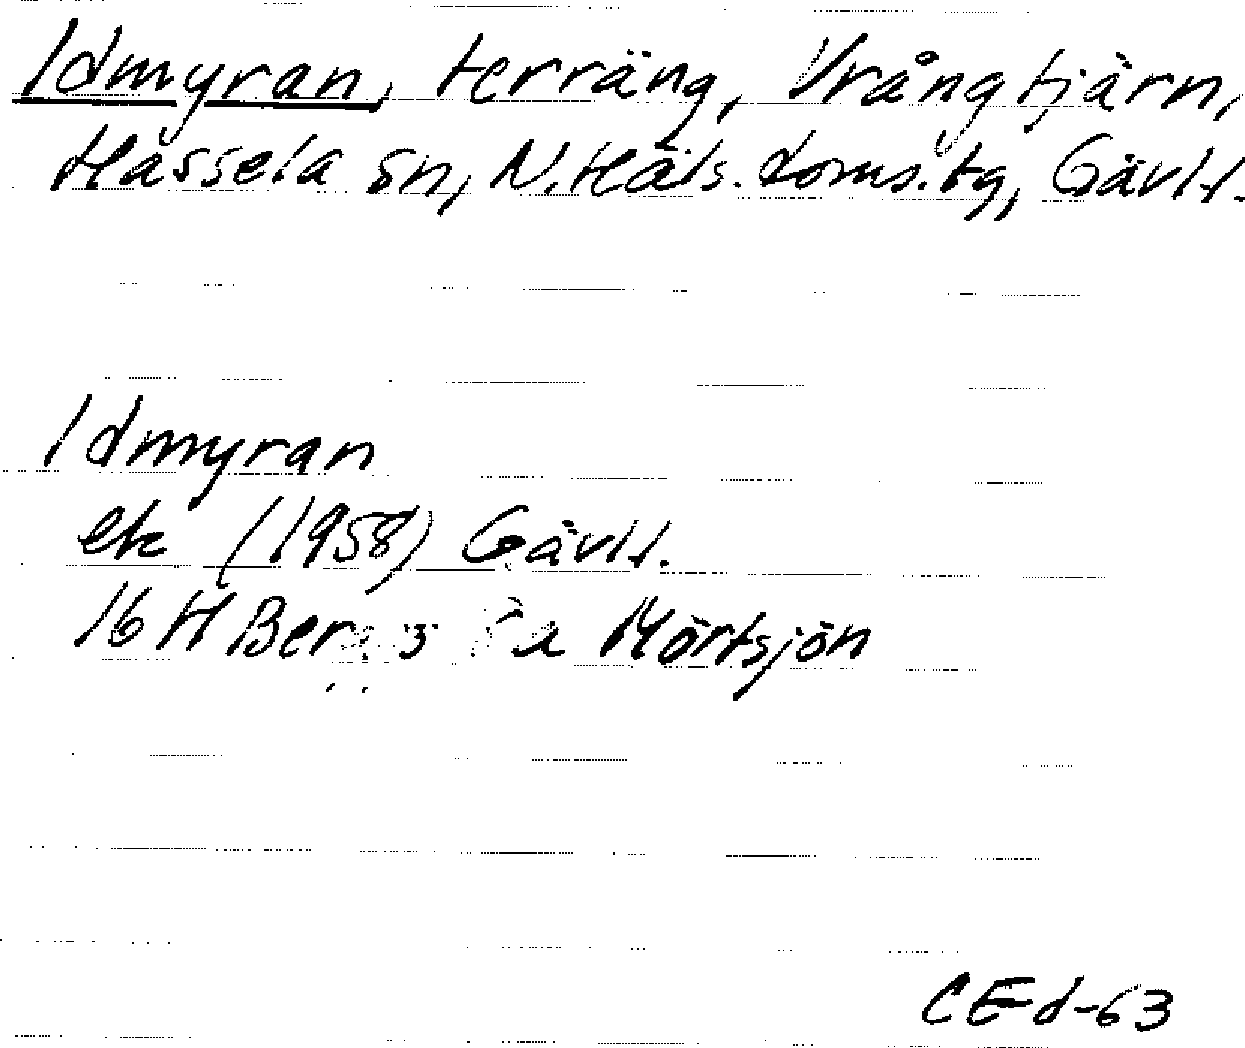 Idmyran, terräng, Vrångtjärn,
Hassela sn, N. Häls. doms. tg, Gävl.l.
Idmyran
ek (1958) Gävl.l.
16 H Mörtsjön
CEd-63